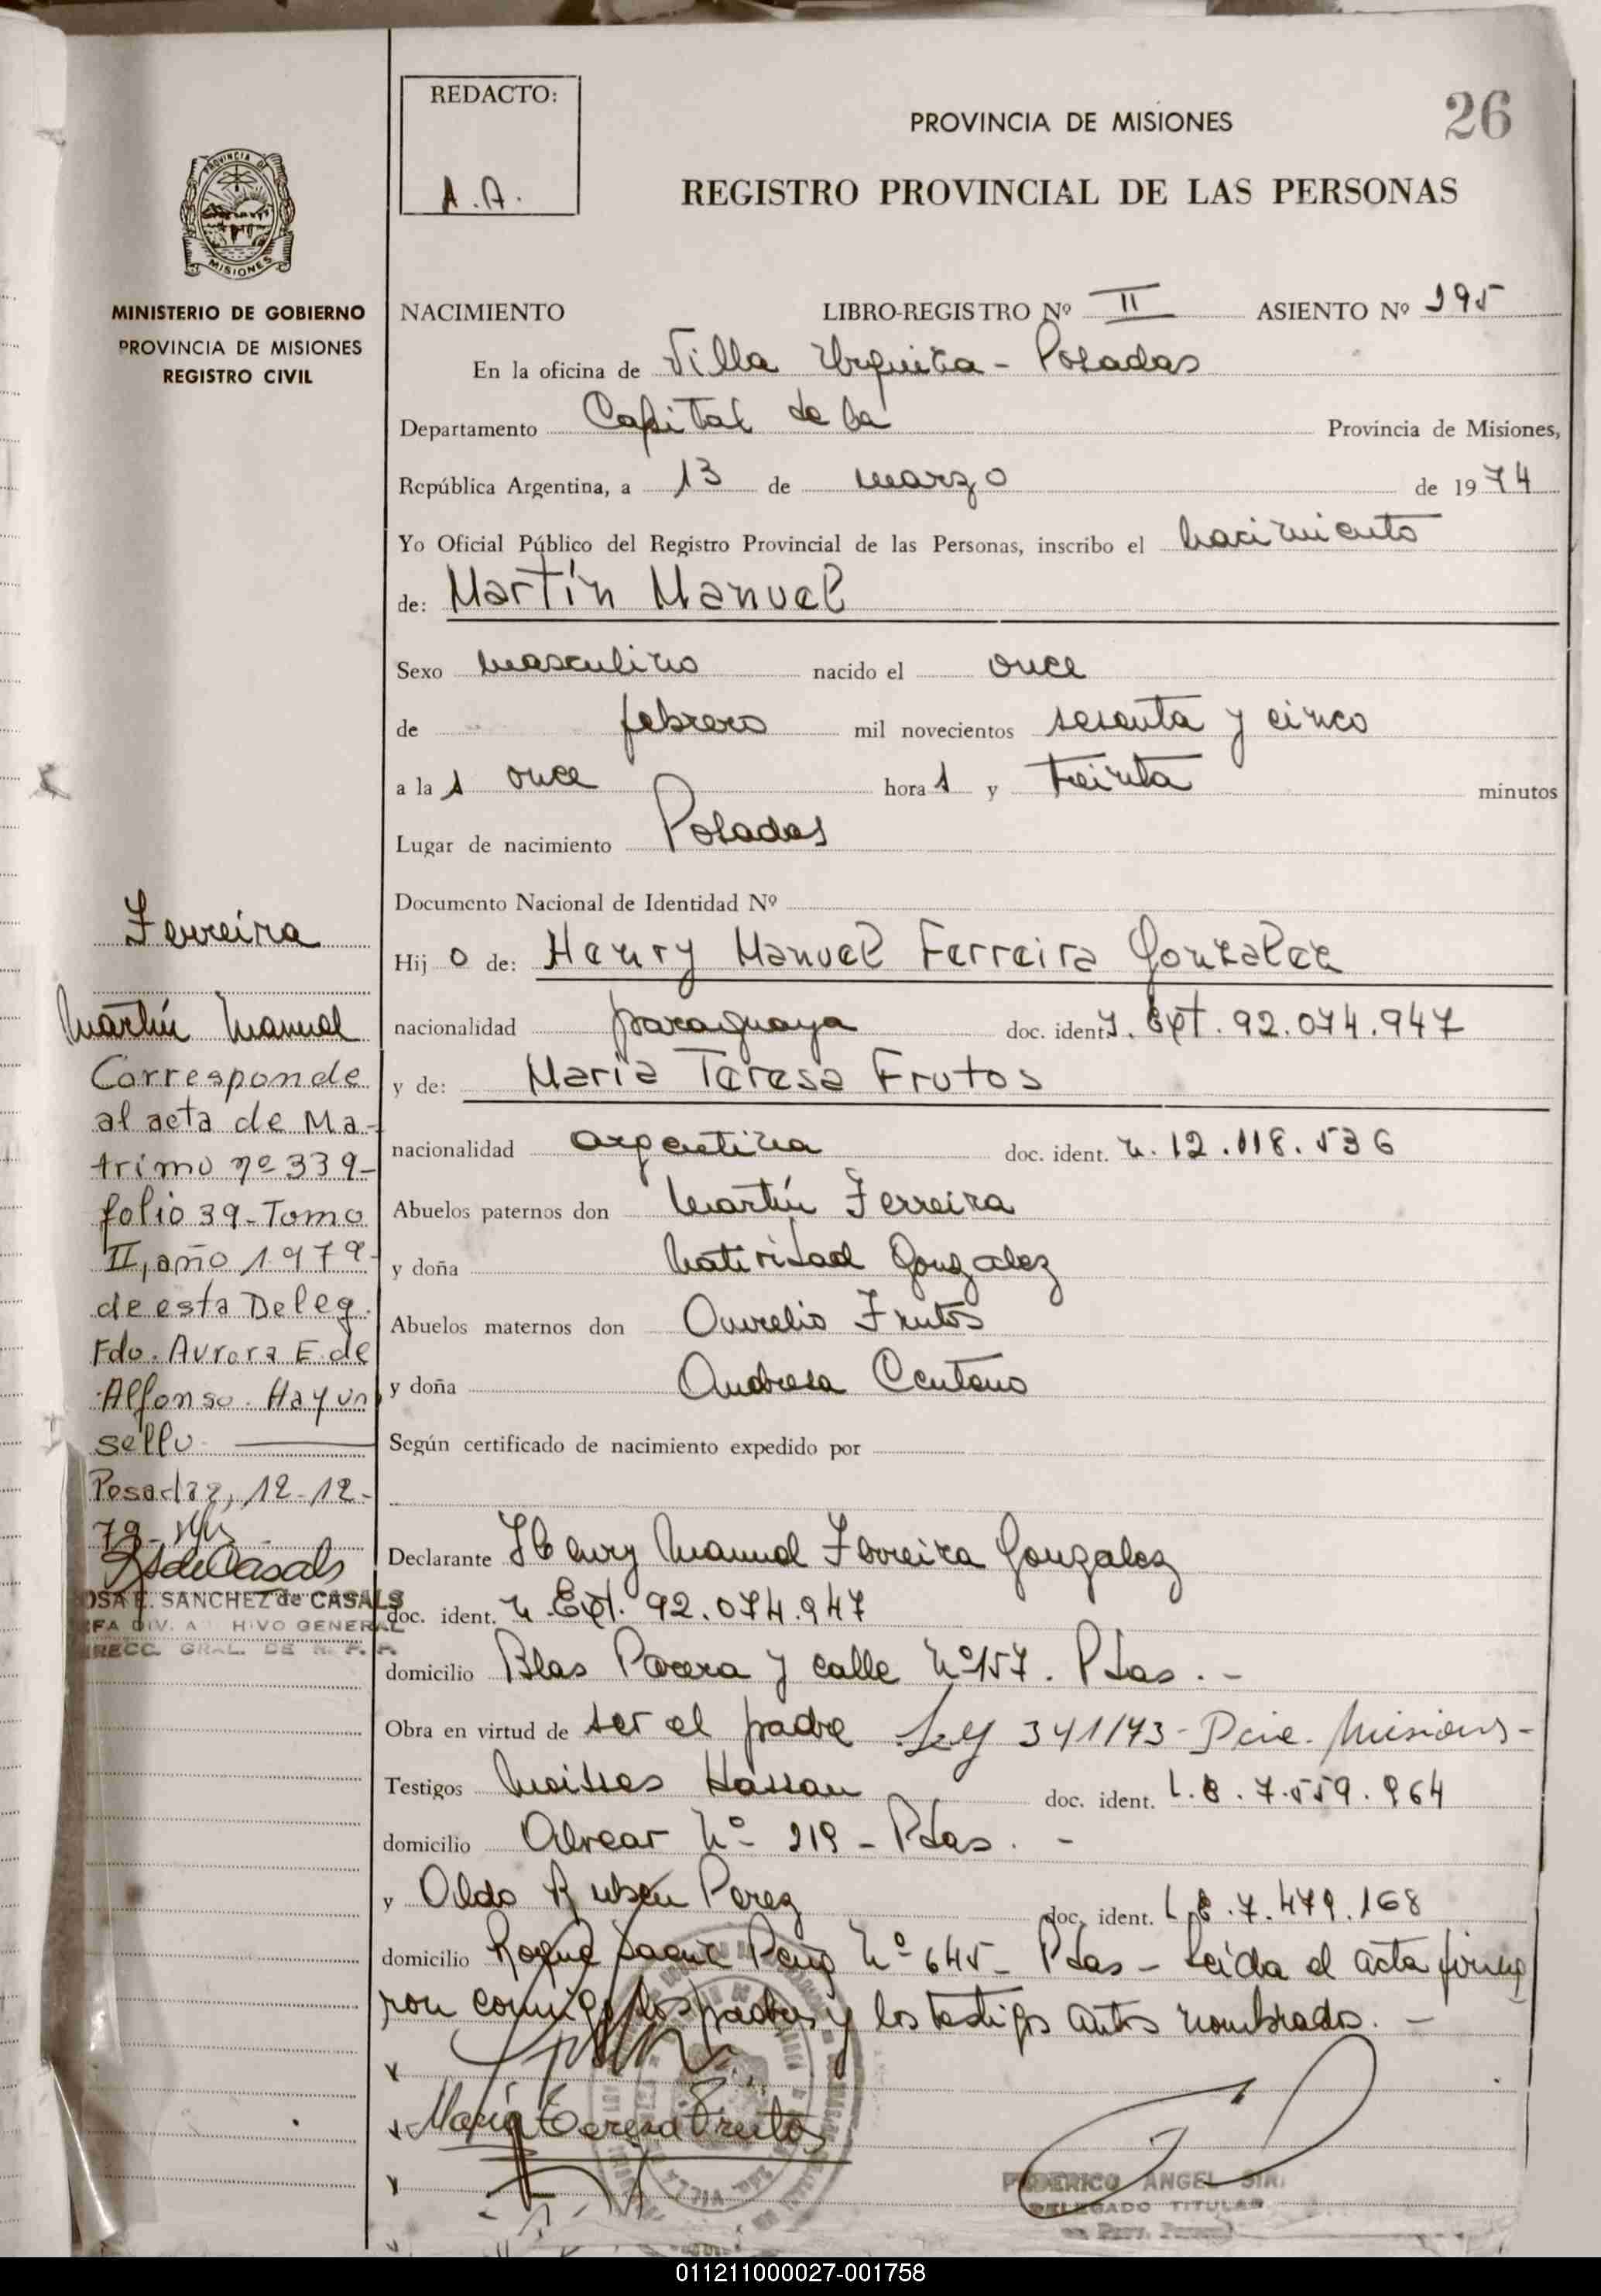 26
REDACTO:
A.A.
PROVINCIA DE MISIONES
REGISTRO PROVINCIAL DE LAS PERSONAS
PROVINCIA DE
MISIONES
MINISTERIO DE GOBIERNO
PROVINCIA DE MISIONES
REGISTRO CIVIL
NACIMIENTO LIBRO-REGISTRO Nº II ASIENTO Nº 295
En la oficina de Villa Urquiza - Posadas
Departamento Capital de la Provincia de Misiones,
República Argentina, a 13 de marzo de 1974
Yo Oficial Público del Registro Provincial de las Personas, inscribo el nacimiento
de: Martín Manuel
Sexo masculino nacido el once
de febrero mil novecientos sesenta y cinco
a la s once hora s y treinta minutos
Lugar de nacimiento Posadas
Documento Nacional de Identidad Nº
Hij o de: Henry Manuel Ferreira Gonzalez
nacionalidad paraguaya doc. ident. Ext. 92.074.947
y de: Maria Teresa Frutos
nacionalidad argentina doc. ident. n. 12.118.536
Abuelos paternos don Martín Ferreira
y doña Natividad Gonzalez
Abuelos maternos don Aurelio Frutos
y doña Andresa Centeno
Según certificado de nacimiento expedido por
Declarante Henry Manuel Ferreira Gonzalez
doc. ident. Ext. 92.074.947
domicilio Blas Parera y calle nº 157. Pdas. -
Obra en virtud de ser el padre Ley 341/73 - Pcie. Misiones -
Testigos Moises Hassan doc. ident. L.E. 7.559.964
domicilio Alvear Nº 219 - Pdas. -
y Oldo Ruben Perez doc. ident. L.E. 7.479.168
domicilio Roque Saenz Peña Nº 645 - Pdas - Leída el acta firma
ron conmigo los padres y los testigos antes nombrados. -
Maria Teresa Frutos
FEDERICO ANGEL
DELEGADO TITULAR
Ferreira
Martín Manuel
Corresponde
al acta de Ma-
trimo nº 339-
folio 39-Tomo
II, año 1979-
de esta Deleg.
Fdo. Aurora E. de
Alfonso. Hay un
sello
Posadas, 12-12-
79-
RSdeCasals
ROSA E. SANCHEZ de CASALS
JEFA DIV. ARCHIVO GENERAL
DIRECC. GRAL. DE R. P. P.
011211000027-001758